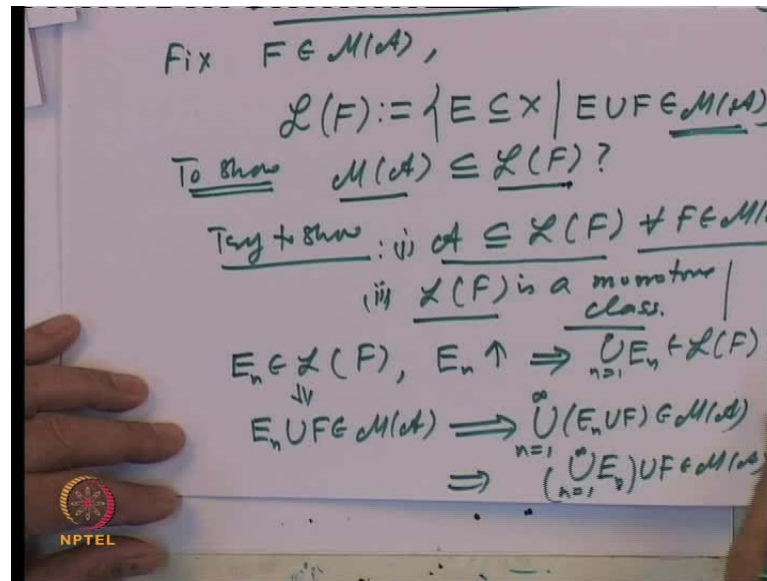 Fix F ∈ M(A),
L(F) := {E ⊆ X | E ∪ F ∈ M(A)
To show M(A) ⊆ L(F) ?
Try to show : (i) A ⊆ L(F) ∀ F ∈ M(
(ii) L(F) is a monotone
class.
E_n ∈ L(F), E_n ↑ ⇒ ∪_{n=1}^∞ E_n ∈ L(F)
⇓
E_n ∪ F ∈ M(A) ⟹ ∪_{n=1}^∞ (E_n ∪ F) ∈ M(A)
⇒ (∪_{n=1}^∞ E_n) ∪ F ∈ M(A)
NPTEL